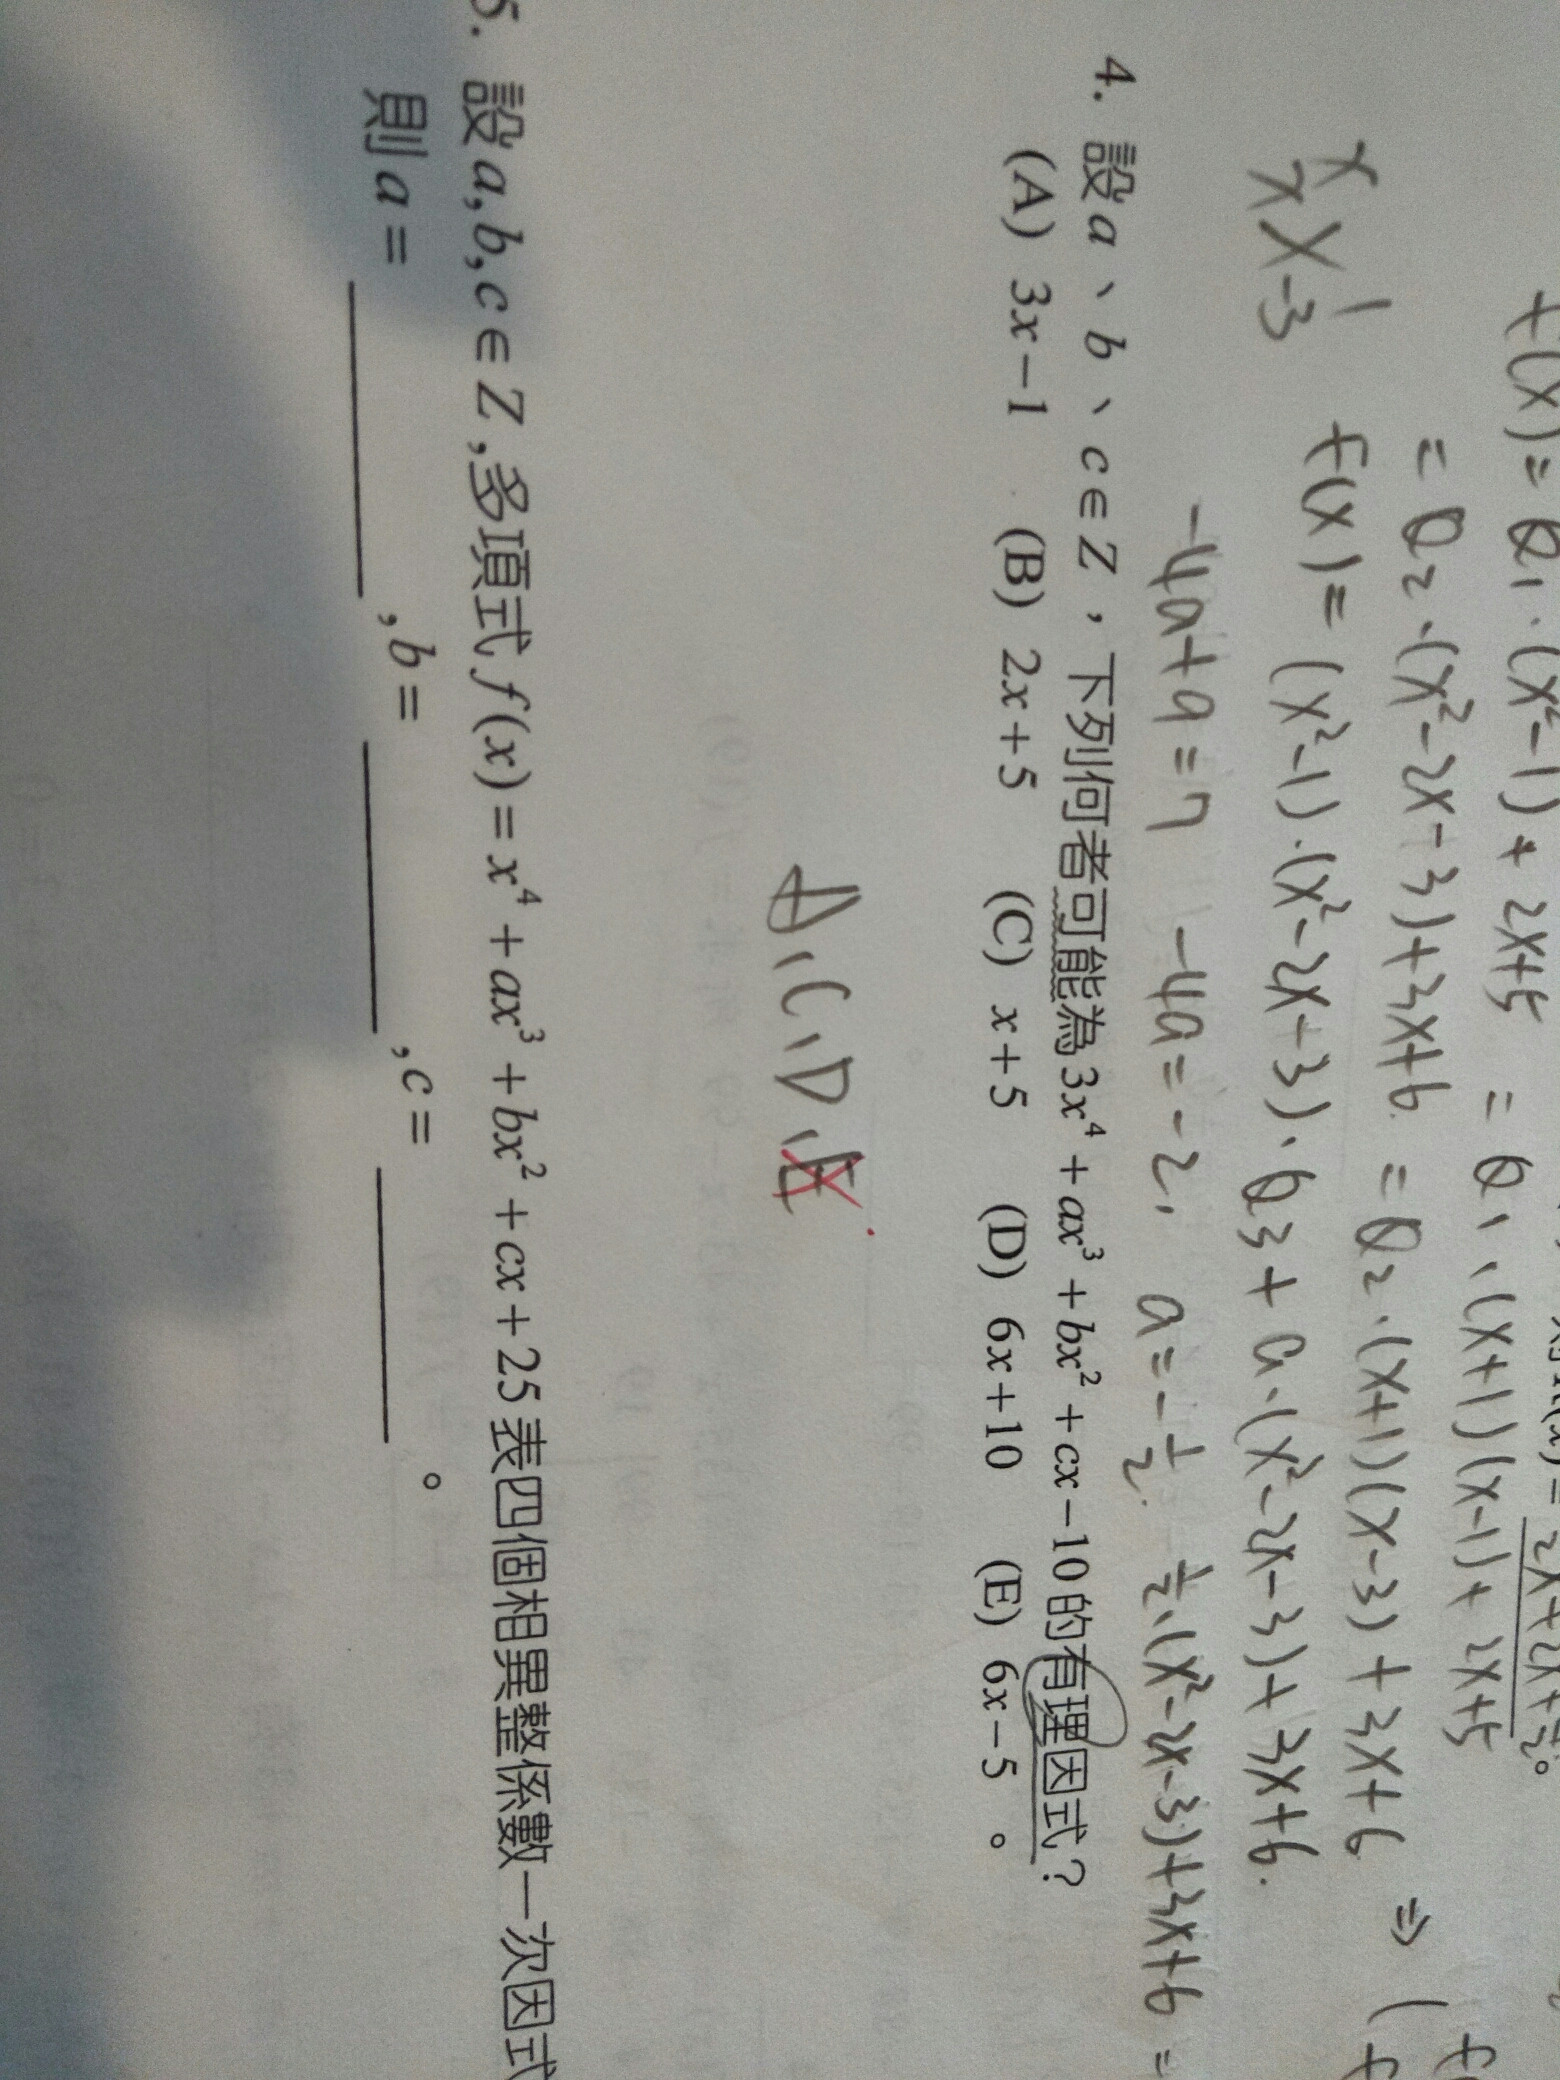 f(x)=Q₁·(x²-1)+2x+5 = Q₁·(x+1)(x-1)+2x+5
=Q₂·(x²-2x-3)+3x+6. =Q₂·(x+1)(x-3)+3x+6 ⇒
x 1
x -3
f(x)=(x²-1)·(x²-2x+3)·Q₃+a·(x²-2x-3)+3x+6.
-4a+9=7 -4a=-2, a=-1/2. 1/2·(x²-2x-3)+3x+6=
4. 設a、b、c∈Z，下列何者可能為3x⁴+ax³+bx²+cx-10的有理因式？
(A) 3x-1 (B) 2x+5 (C) x+5 (D) 6x+10 (E) 6x-5 。
A,C,D,E
5. 設a,b,c∈Z,多項式f(x)=x⁴+ax³+bx²+cx+25表四個相異整係數一次因式
則a= ,b= ,c= 。